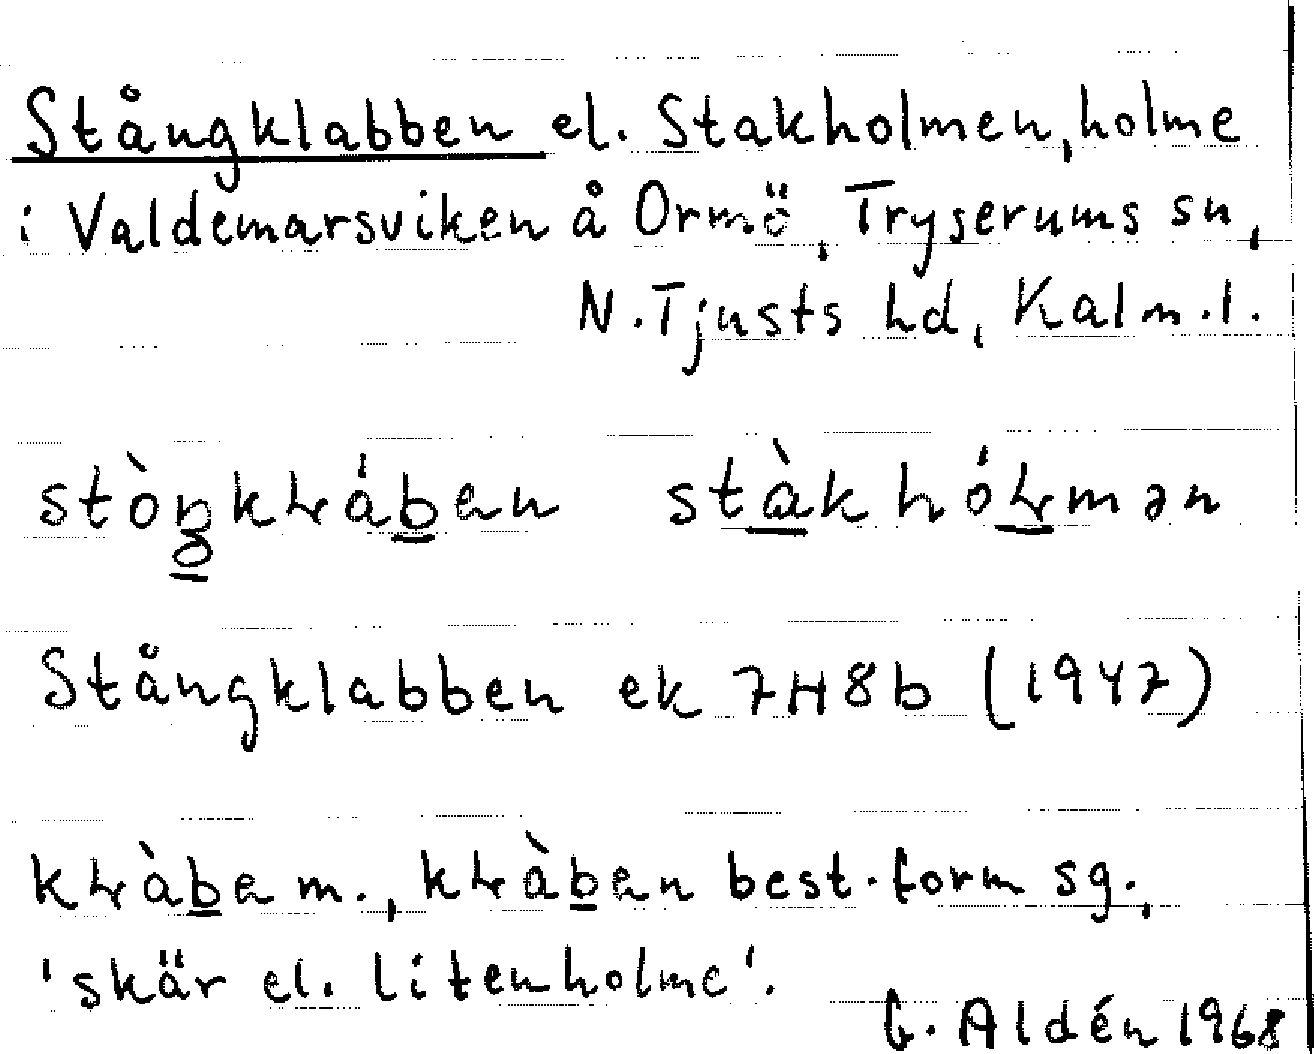 Stångklabben el. Stakholmen, holme
i Valdemarsviken å Ormö, Tryserums sn,
N. Tjusts hd, Kalm. l.
stòŋkɫáben stàkhóɫmən
Stångklabben ek 7H8b (1947)
kɫàbe m., kɫàben best. form sg.,
'skär el. liten holme'.
G. Aldén 1968